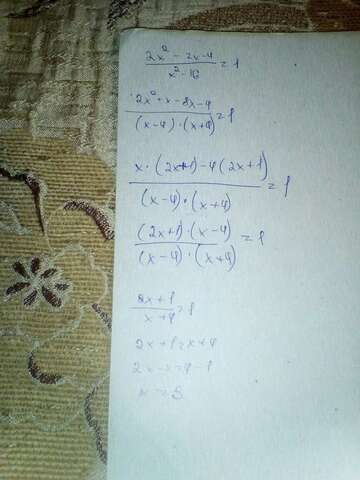 2x² - 7x - 4 / x² - 16 = 1
2x² + x - 8x - 4 / (x-4)·(x+4) = 1
x·(2x+1) - 4(2x+1) / (x-4)·(x+4) = 1
(2x+1)·(x-4) / (x-4)·(x+4) = 1
2x+1 / x+4 = 1
2x+1 = x+4
2x - x = 4 - 1
x = 3